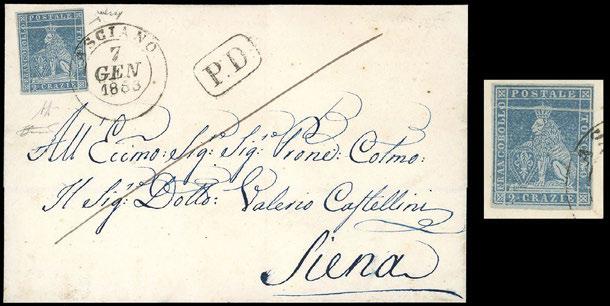 FRANCOBOLLO POSTALE TOSCANO
2 CRAZIE
ASCIANO
7
GEN
1853
P.D
All'Ecimo: Sig: Sig: Prone: Colmo:
Il Sig: Dotto: Valerio Castellini
Siena
FRANCOBOLLO POSTALE TOSCANO
2 CRAZIE